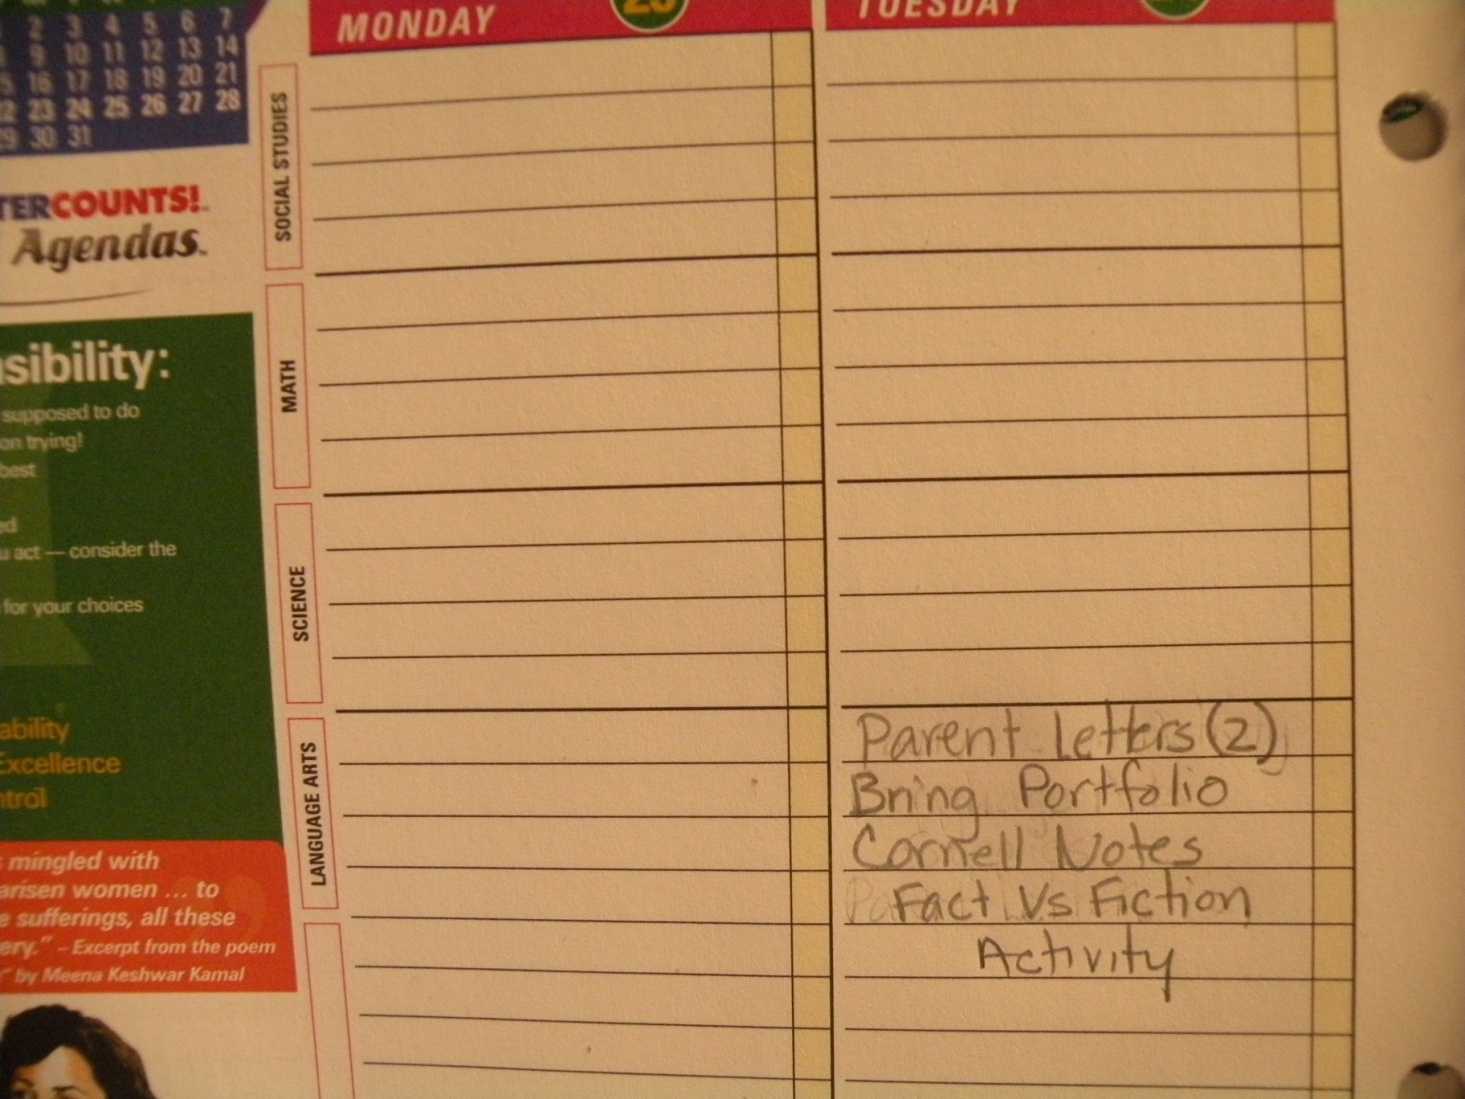 2 3 4 5 6 7
9 10 11 12 13 14
16 17 18 19 20 21
22 23 24 25 26 27 28
29 30 31
TERCOUNTS!
Agendas™
nsibility:
supposed to do
on trying!
best
ed
u act — consider the
for your choices
ability
Excellence
ntrol
mingled with
arisen women ... to
e sufferings, all these
ery." – Excerpt from the poem
" by Meena Keshwar Kamal
MONDAY
TUESDAY
SOCIAL STUDIES
MATH
SCIENCE
LANGUAGE ARTS
Parent Letters (2)
Bring Portfolio
Cornell Notes
Fact Vs Fiction
Activity